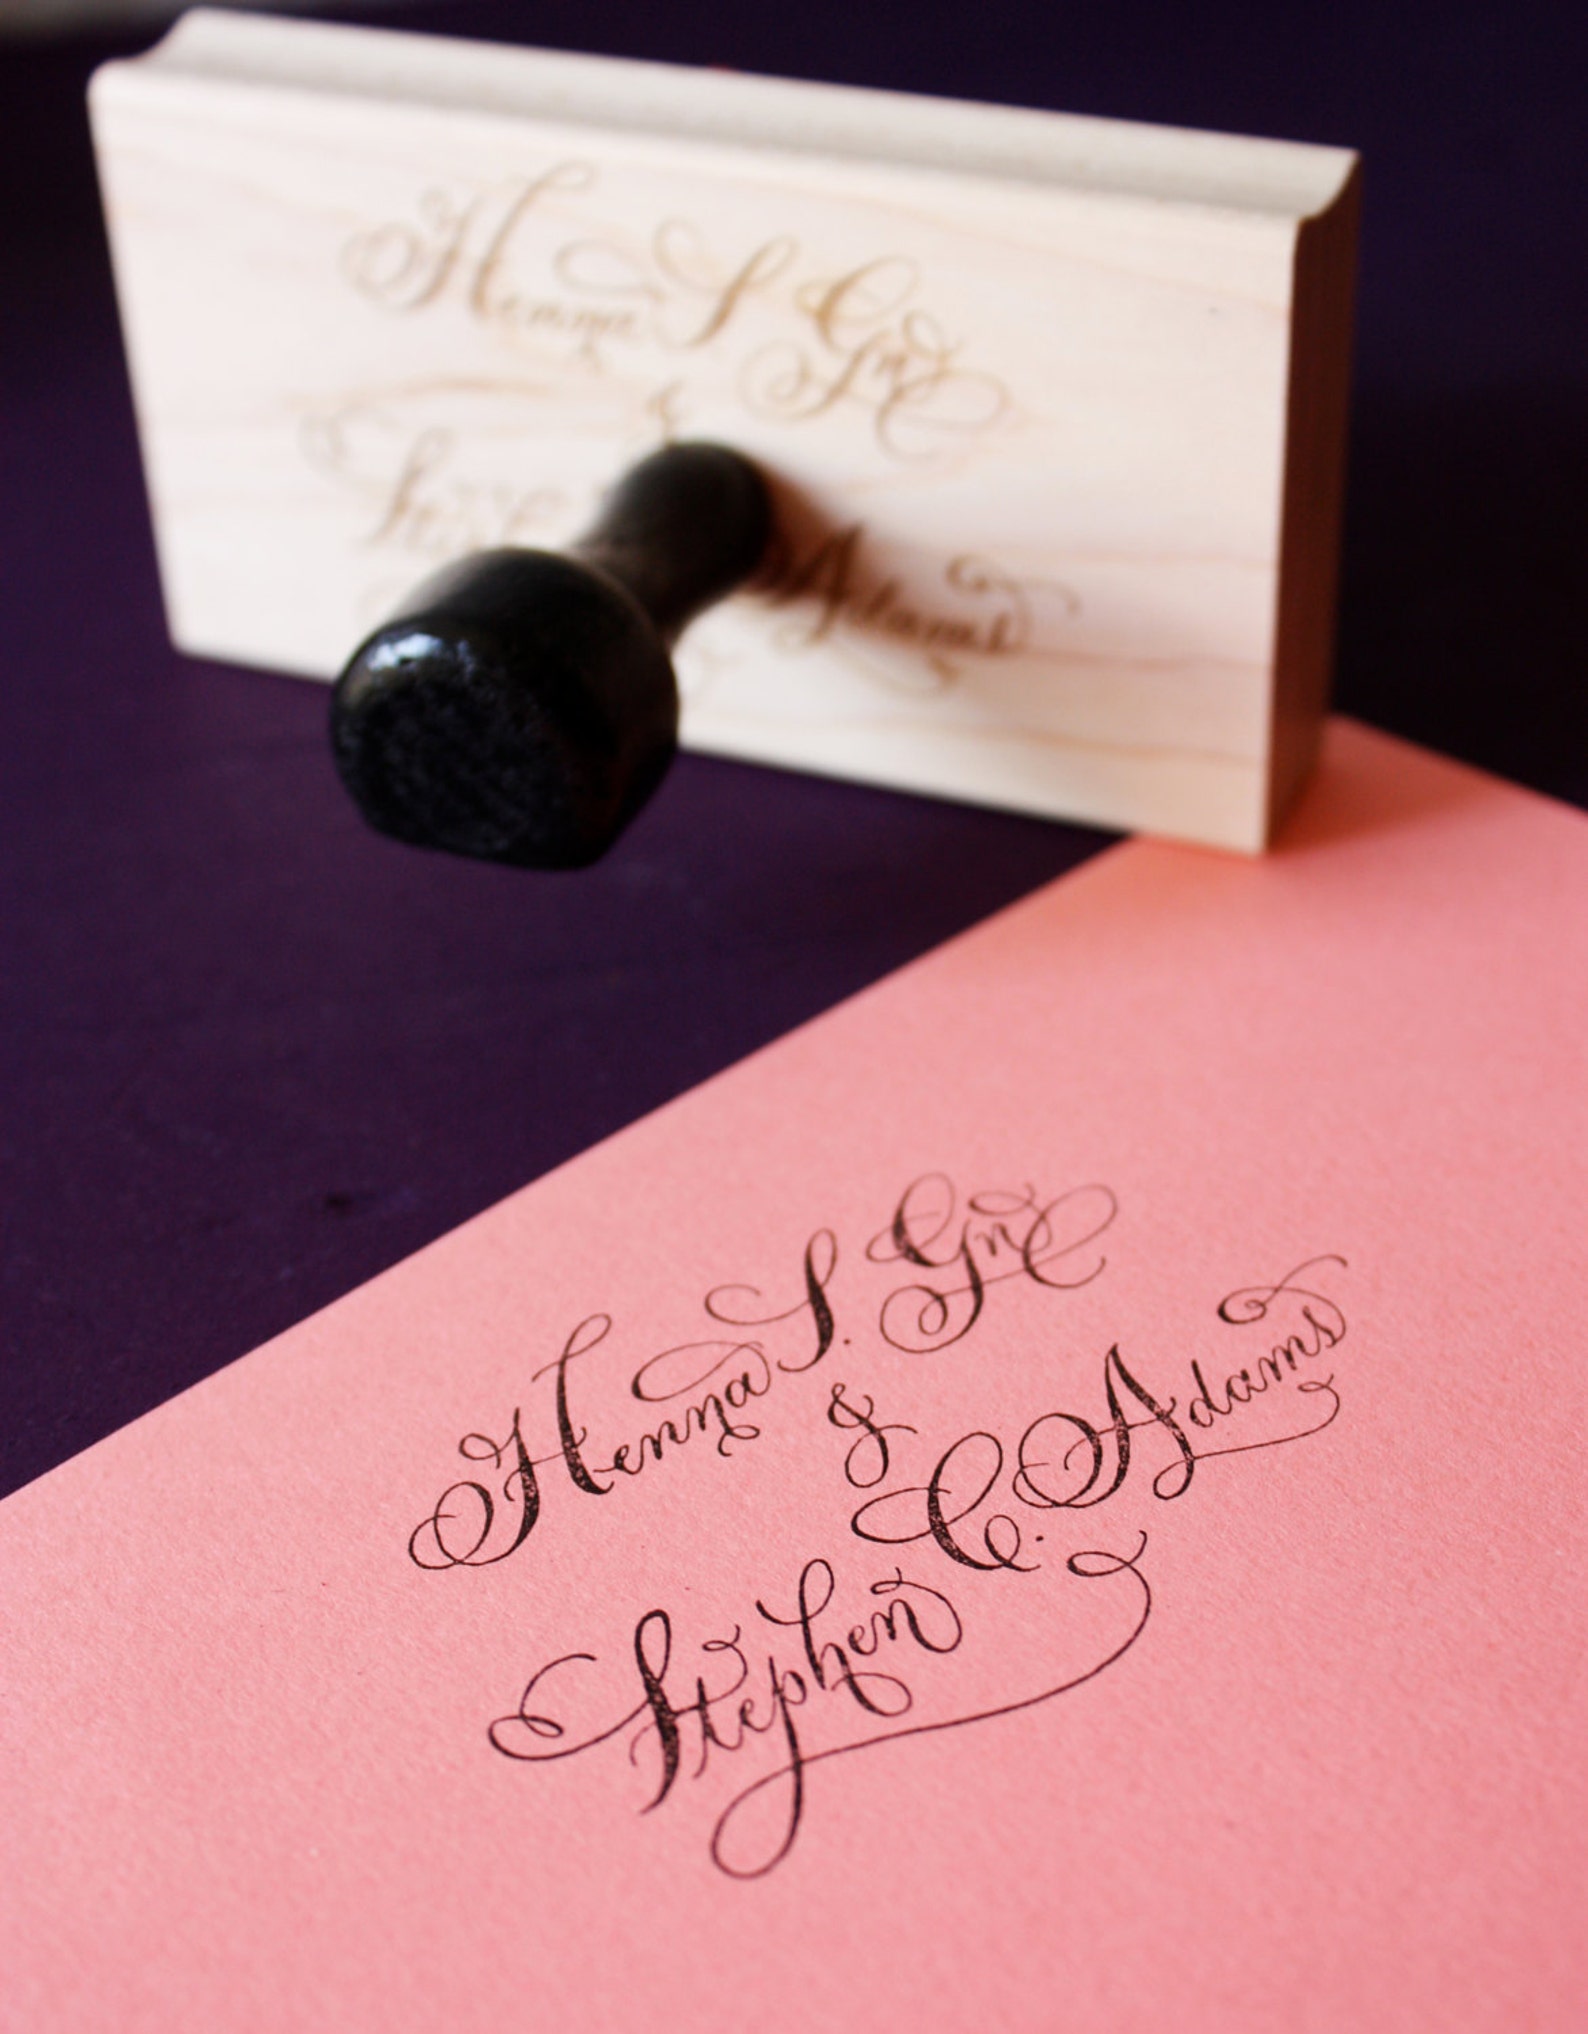 Henna S. Gn
&
Adams
Henna S. Gn
&
Stephen C. Adams